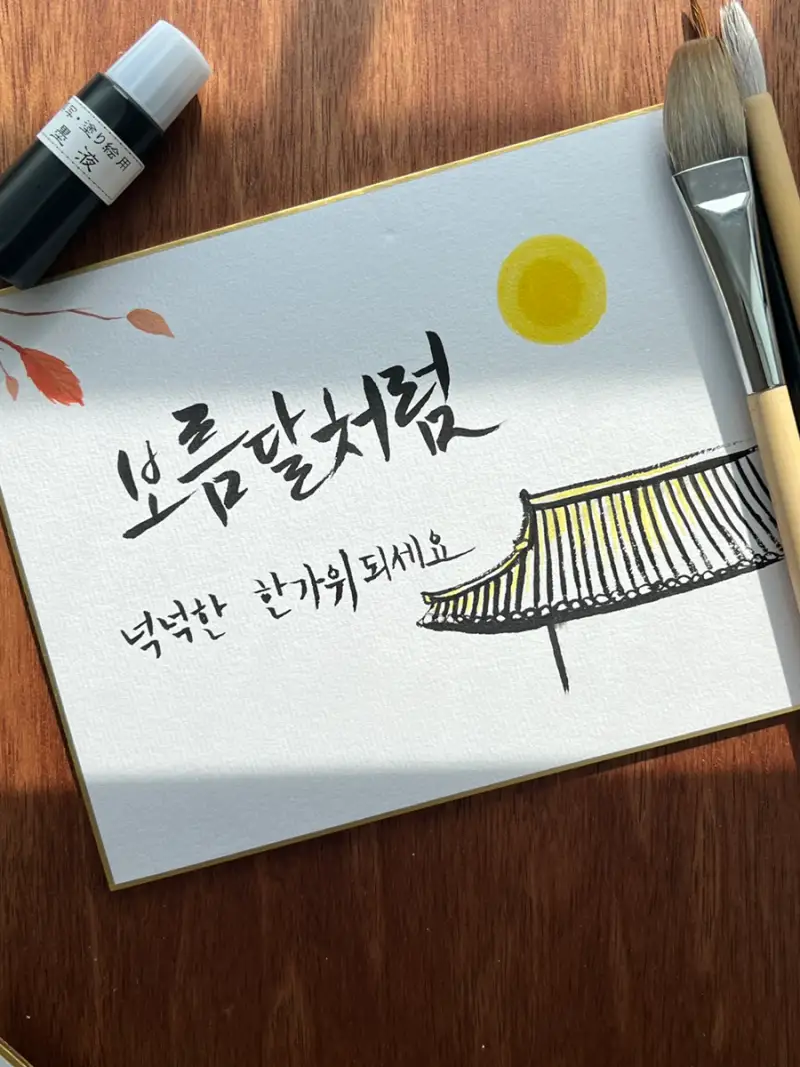 写・塗り絵用
墨液
보름달처럼
넉넉한 한가위 되세요